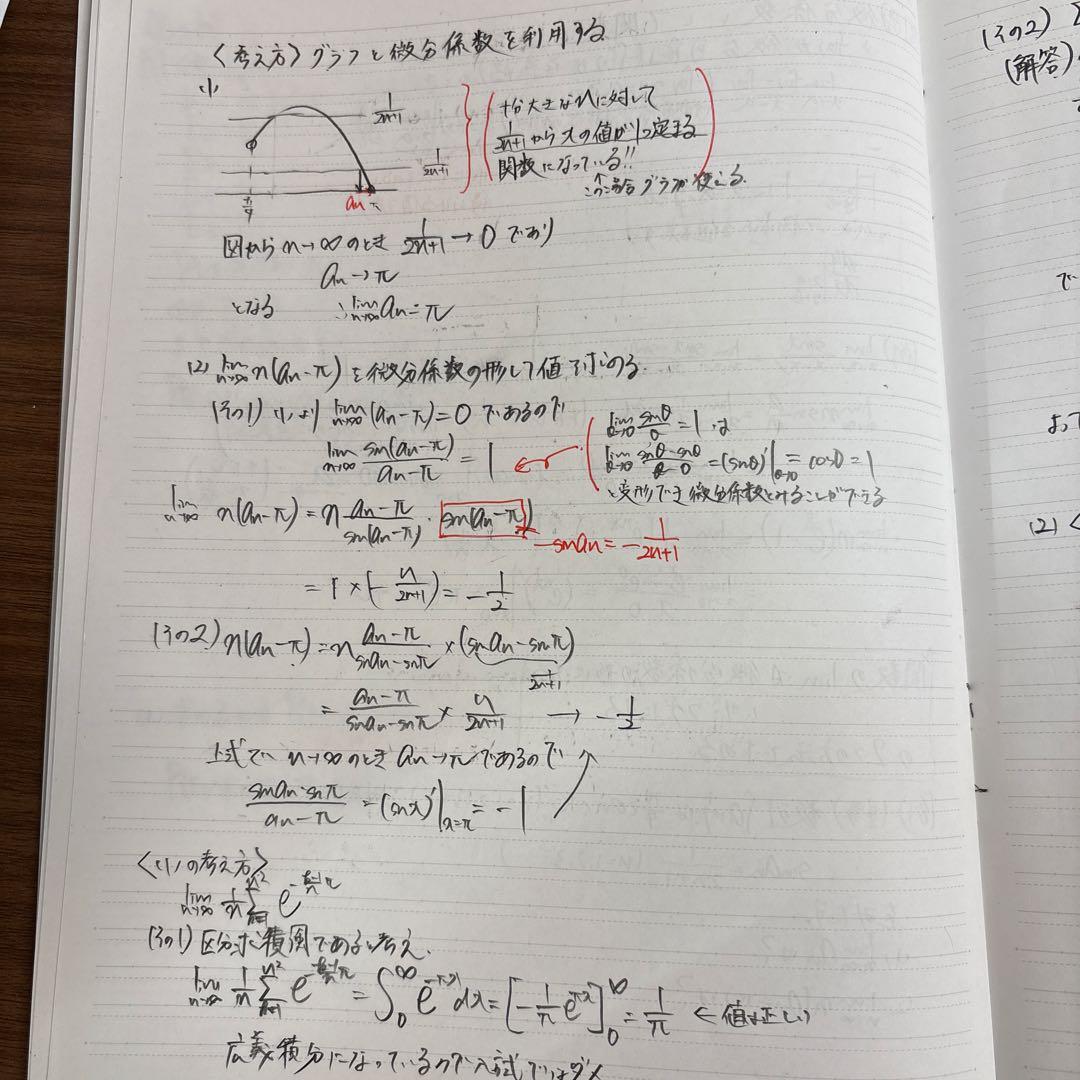 〈考え方〉グラフと微分係数を利用する
(1)
1/(2n+1)
十分大きなnに対して
1/(2n+1) から xの値が1つ定まる
関数になっている!!
この場合グラフが使える.
1/(2n+1)
π/4 an π
図から n→∞のとき 1/(2n+1) → 0 であり
an→π
となる ∴ lim n→∞ an = π
(2) lim n→∞ n(an-π) を微分係数の形して値を求める.
(その1) (1)より lim n→∞ (an-π)=0 であるので
lim n→∞ sin(an-π)/(an-π) = 1
lim θ→0 sinθ/θ = 1 は
= (sinθ)'|θ=0 = cosθ = 1
と変形でき微分係数とみることができる
lim n→∞ n(an-π) = n (an-π)/sin(an-π) · sin(an-π)
-sin an = - 1/(2n+1)
= 1 × (- n/(2n+1)) = - 1/2
(その2) n(an-π) = n (an-π)/(sin an - sin π) × (sin an - sin π)
1/(2n+1)
= (an-π)/(sin an - sin π) × n/(2n+1) → - 1/2
上式で n→∞のとき an→π であるので
(sin an - sin π)/(an-π) = (sin x)'|x=π = -1
〈(1)の考え方〉
lim n→∞ 1/n Σ e
(その1) 区分求積
であると考え.
lim n→∞ 1/n Σ e = ∫0^∞ e^-πx dx = [- 1/π e^-πx]0^∞ = 1/π ← 値は正しい
広義積分になっているので入試ではダメ
(その2)
(解答)
で
よって
(2) 〈